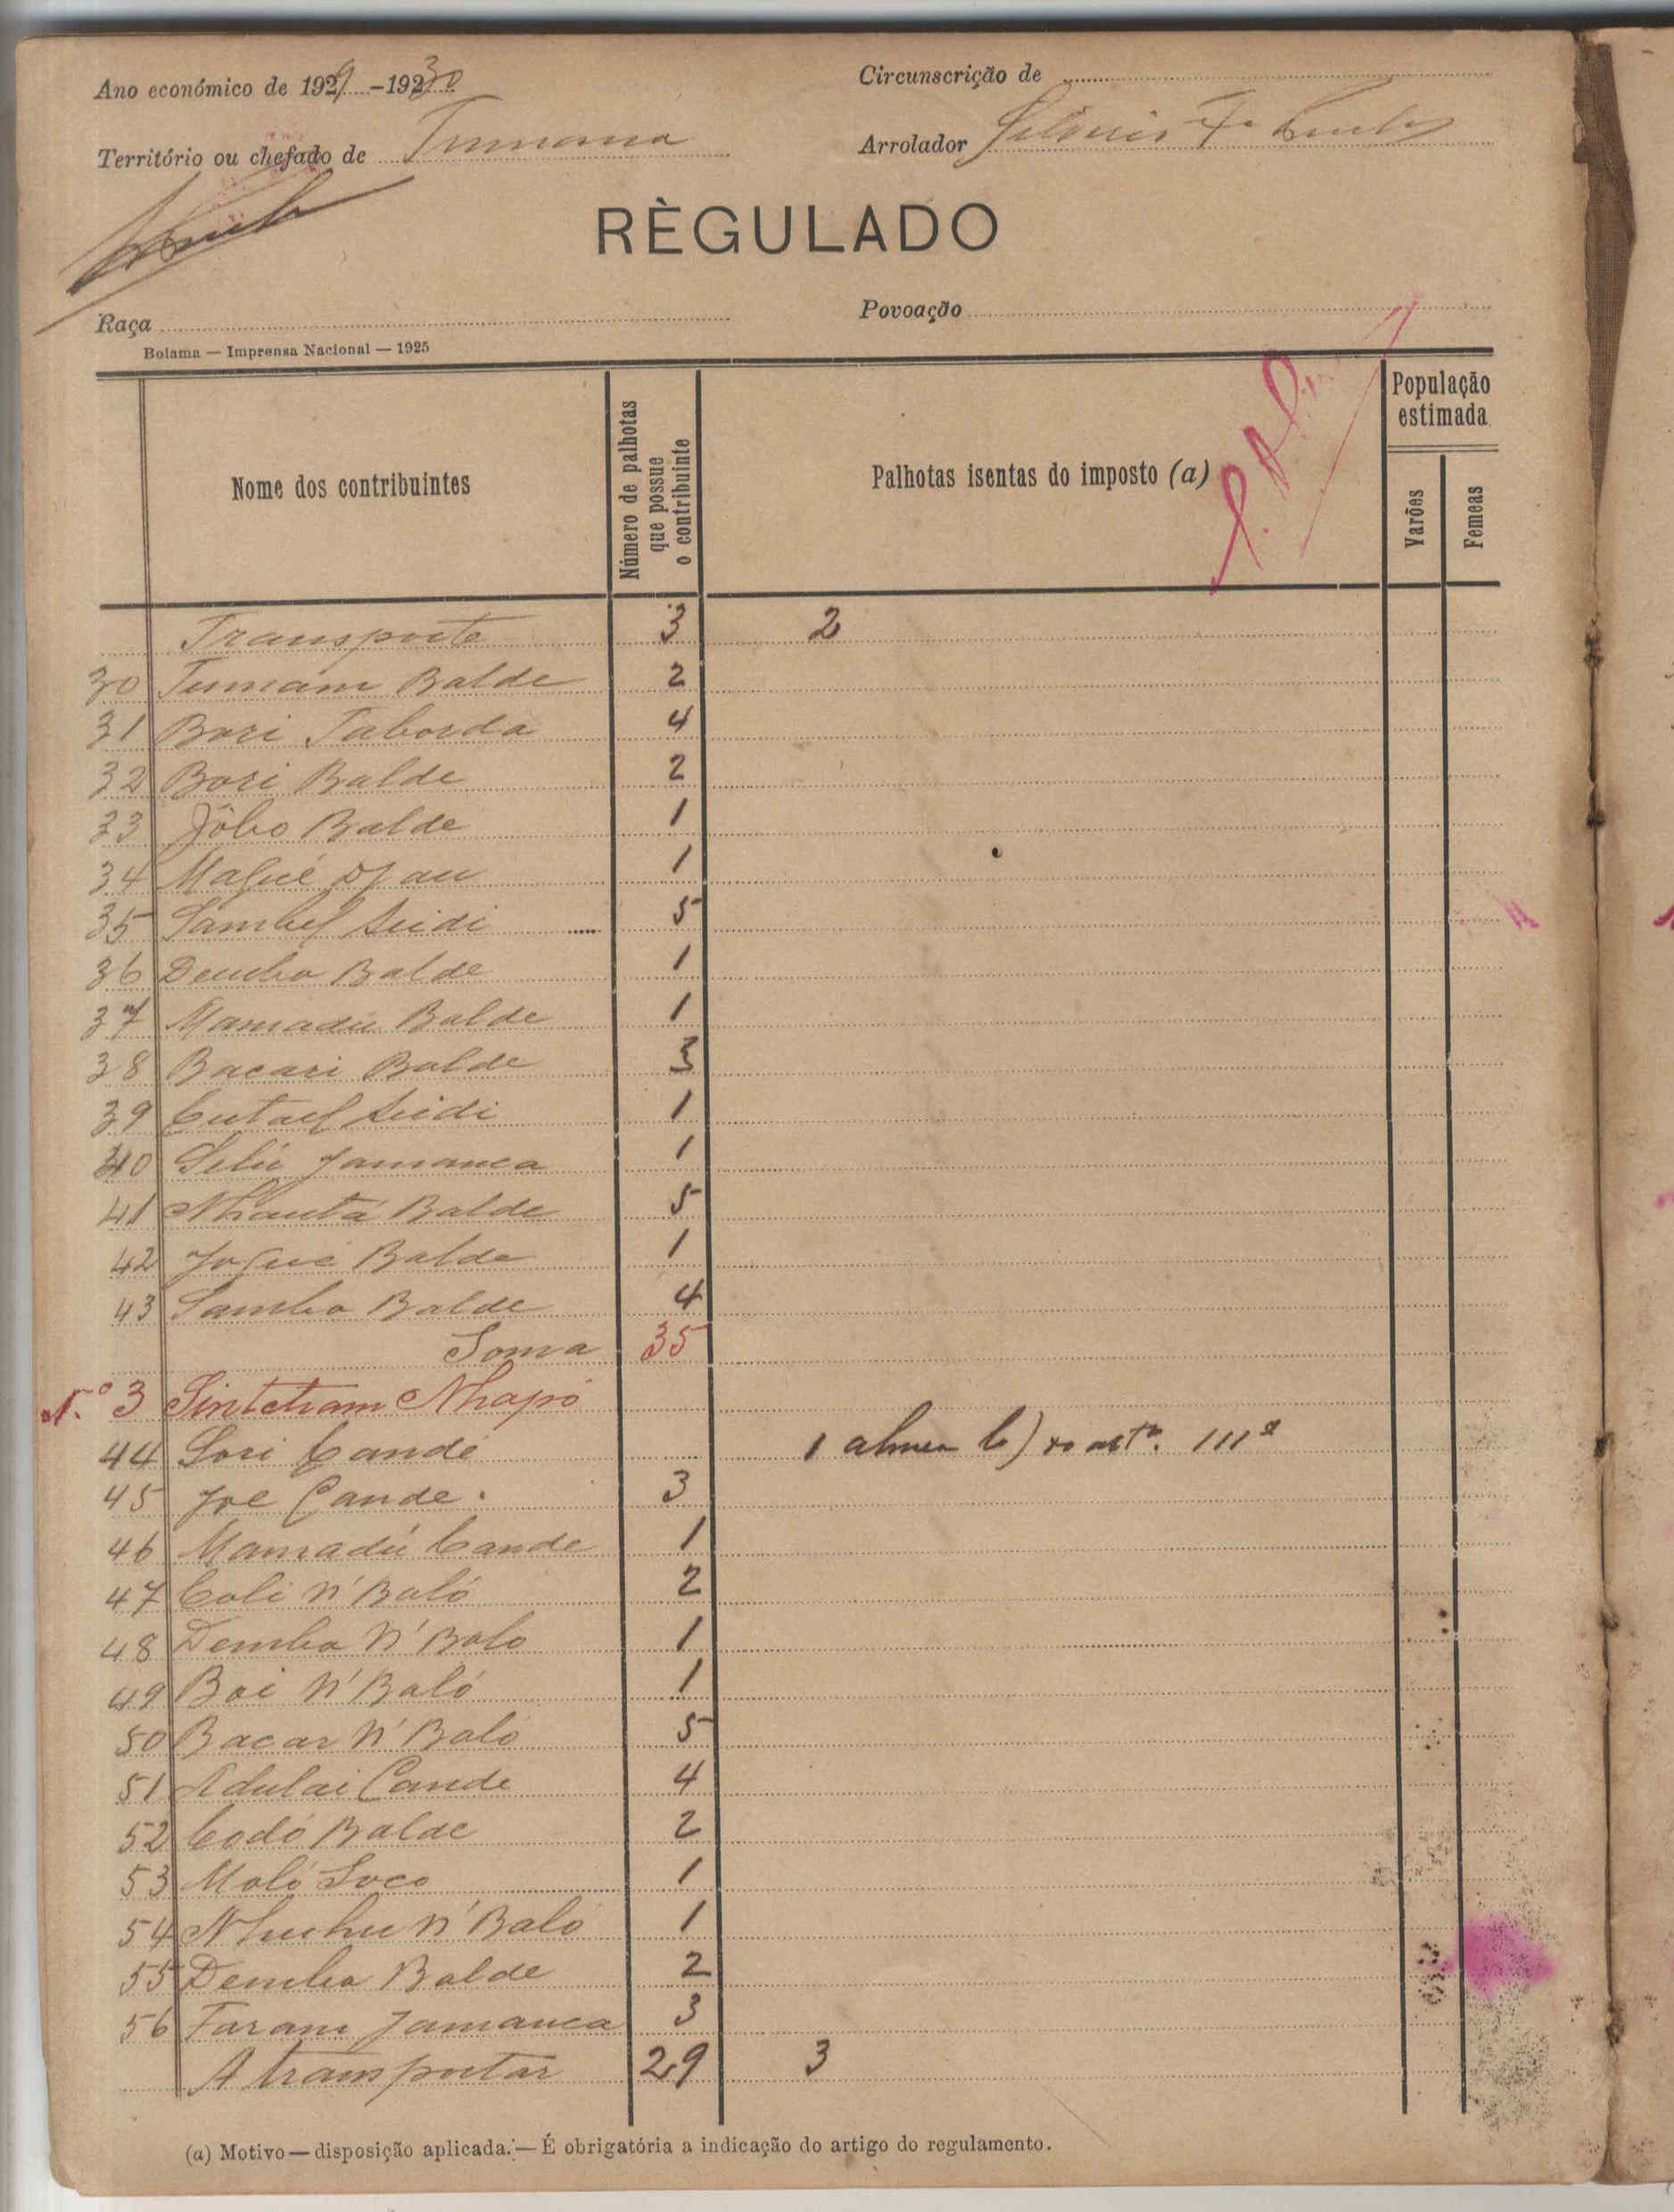 Ano económico de 1929 –1930
Circunscrição de
Território ou chefado de Tumana
Arrolador
RÈGULADO
Raça
Povoação
Bolama — Imprensa Nacional — 1925
Nome dos contribuintes
Número de palhotas que possue o contribuinte
Palhotas isentas do imposto (a)
População estimada
Varões
Femeas
Transporte 3 2
30 Tumam Balde 2
31 Bori Taborda 4
32 Bori Balde 2
33 Jôbo Balde 1
34 Malué 1
35 Seidi 5
36 Demba Balde 1
37 Mamadu Balde 1
38 Bacari Balde 3
39 Seidi 1
40 Jamanca 1
41 Nhantá Balde 5
42 Balde 1
43 Samba Balde 4
Soma 35
N.º 3 Sintcham Nhapó
44 Sori Candé 1 b) do artº. 111º
45 Joe Cande. 3
46 Mamadú Cande 1
47 Coli N' Baló 2
48 Demba N' Balo 1
49 Boi N' Baló 1
50 Bacar N' Baló 5
51 Adulai Cande 4
52 Codó Balde 2
53 Moló Soco 1
54 N' Baló 1
55 Demba Balde 2
56 Faram Jamanca 3
A transportar 29 3
(a) Motivo — disposição aplicada. — É obrigatória a indicação do artigo do regulamento.